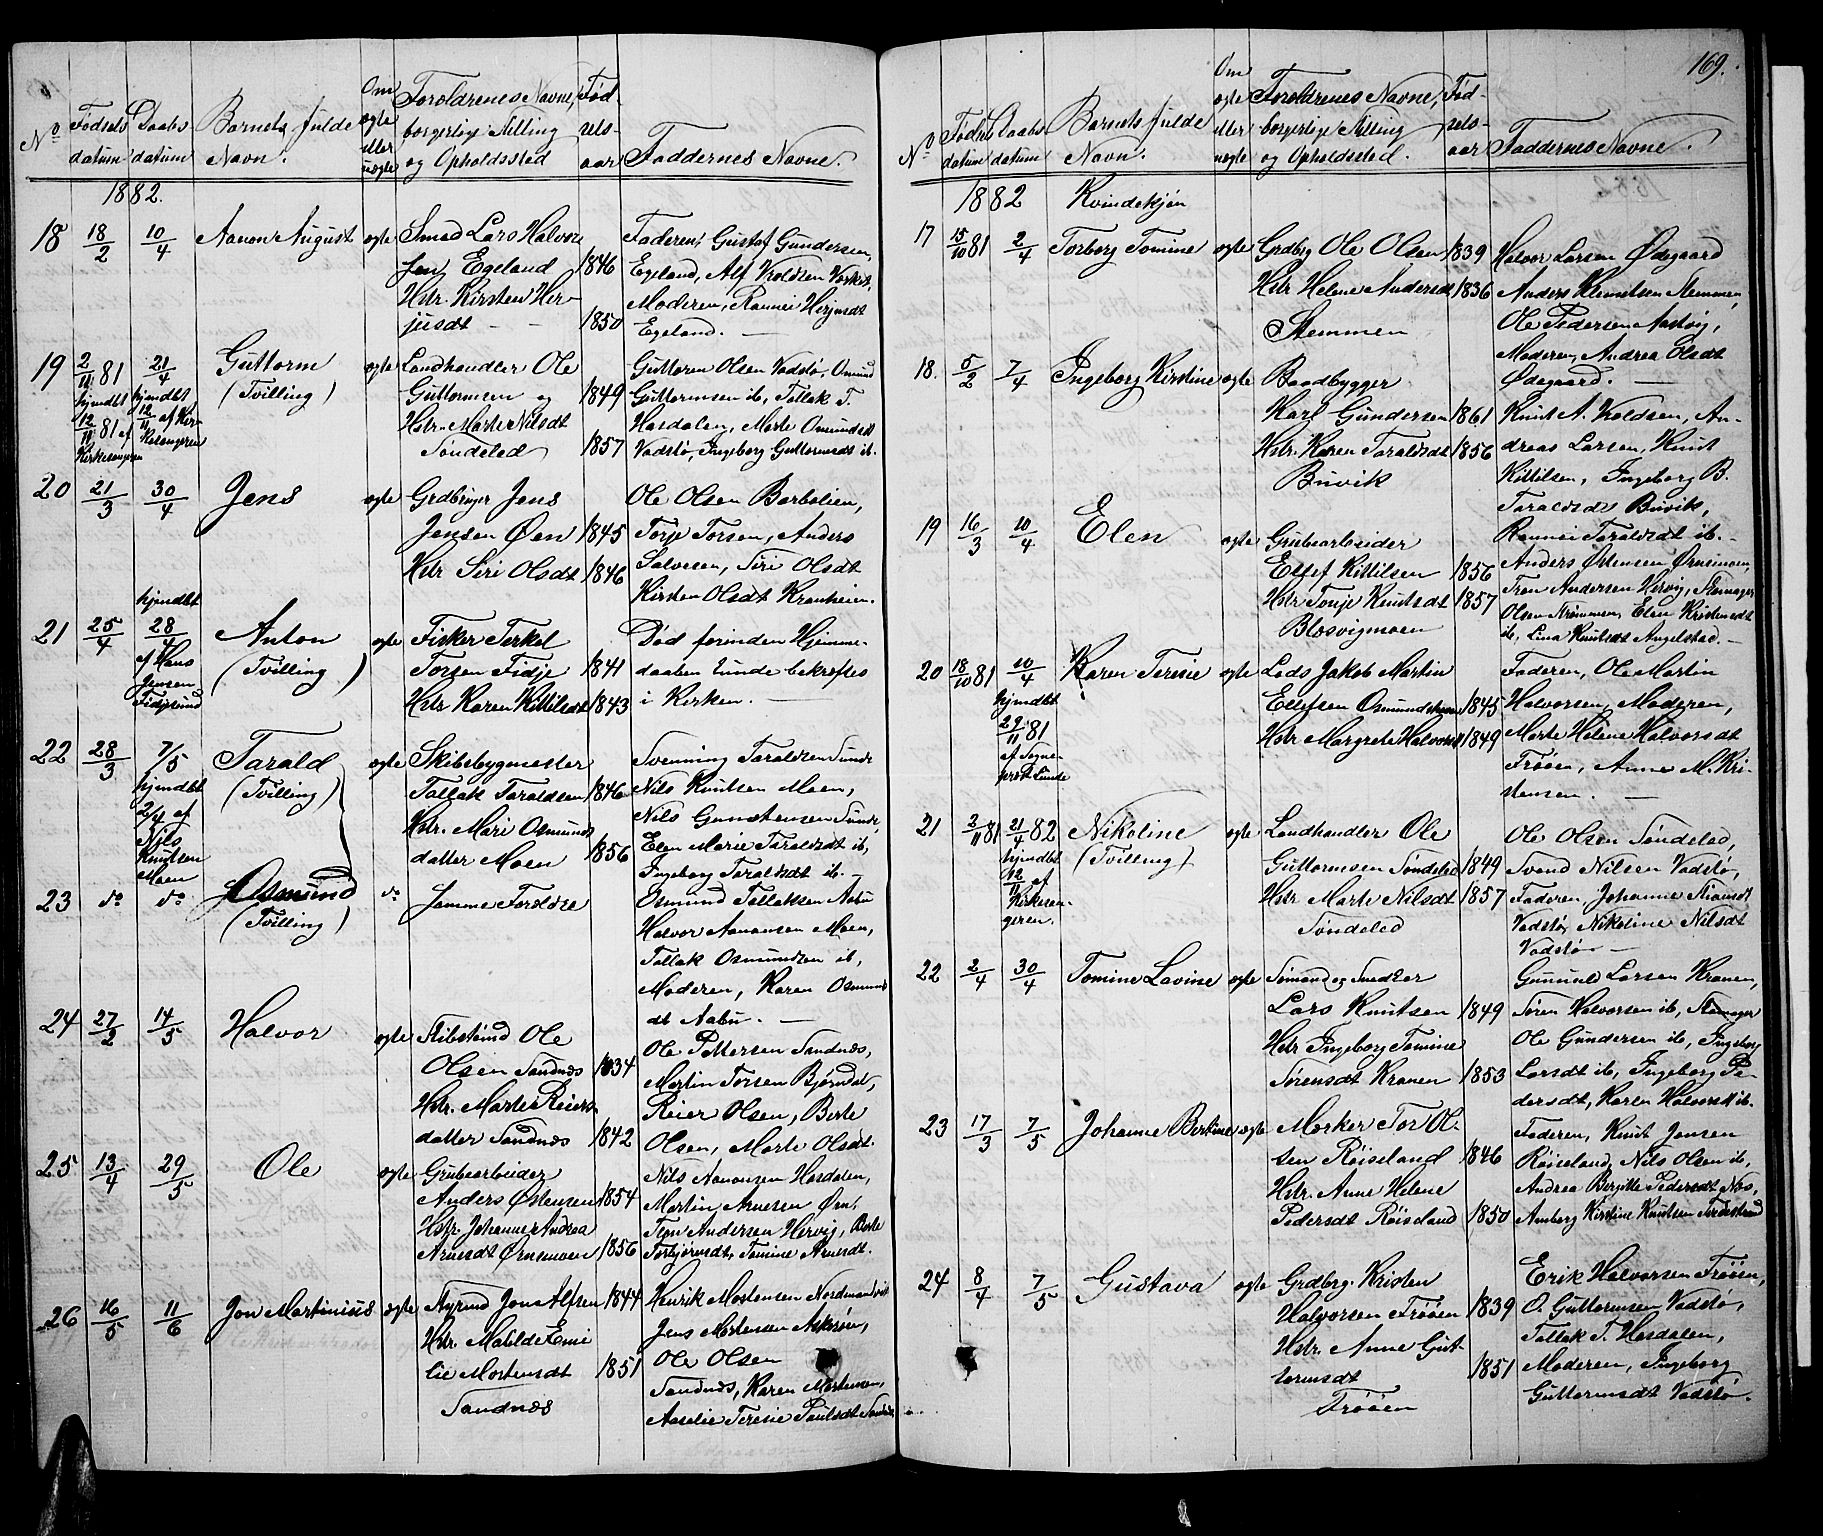 No Fødsels datum Daabs datum Barnets fulde Navn. Om ægte eller uægte Forældrenes Navne, borgerlige Stilling og Opholdssted Fødselsaar Faddernes Navne.
1882.
18 18/2 10/4 Aanon August ægte Smed Lars Halvor- Faderen, Gustaf Gundersen,
sen Egeland 1846 Egeland, Alf
Hstr Kirsten Her- Moderen, Rannei Herjusdt
jusdt 1850 Egeland.
19 2/11 81 21/4 Guttorm ægte Landhandler Ole Guttorm Olsen Vadstø, Osmund
hjmdbt hjmdbt (Tvilling) Guttormsen og 1849 Guttormsen ib, Tallak T.
12/11 81 af 12/11 af Kir- Hstr. Marte Nilsdt Hasdalen, Marte Osmundsdt
Kirkesangeren kesangeren Søndeled 1857 Vadstø, Ingeborg Guttormsdt ib.
20 21/3 30/4 Jens ægte Grdbruger Jens Ole Olsen Barbolien,
Jensen Øen 1845 Torje Torsen, Anders
Hstr Siri Olsdt 1846 Salvesen, Siri Olsdt
Kirsten Olsdt Kranheien.
21 25/4 hjmdbt 28/4 Anton ægte Fisker Terkel Død forinden Hjemme-
af Hans (Tvilling) Torsen Fidje 1841 daaben kunde bekræftes
Jensen Hstr Karen Kittilsdt 1843 i Kirken.
Fidjesund
22 28/3 7/5 Tarald ægte Skibsbygmester Svenning Taraldsen Sunde
hjmdbt (Tvilling) Tallak Taraldsen 1846 Nils Knutsen Moen,
2/4 af Hstr. Mari Osmunds Nils Gunstensen Sunde,
Nils datter Moen 1856 Elen Marie Taraldsdt ib,
Knutsen Ingeborg Taraldsdt ib.
Moen
23 do do Osmund do Samme Forældre Osmund Tallaksen Aabu
(Tvilling) Halvor Aanonsen Moen,
Tallak Osmundsen ib,
Moderen, Karen Osmunds
dt Aabu.
24 27/2 14/5 Halvor ægte Ole Ole Pettersen Sandnæs,
Olsen Sandnæs 1834 Martin Torsen Bjørndal,
Hstr. Marte Reiers- Reier Olsen, Berte
datter Sandnæs 1842 Olsen, Marte Olsdt.
25 13/4 29/5 Ole ægte Grubearbeider Nils Aanonsen Hasdalen,
Anders Østensen 1854 Martin Arnesen Øen,
Hstr. Johanne Andrea Tron Andersen Hervig, Berte
Arnesdt Ørnemoen 1856 Torbjørnsdt, Tomine Arnesdt.
26 16/5 11/6 Jon Martinius ægte Styrmd Jon Alfsen 1844 Henrik Mortensen Nordmandvik
Hstr. Matilde Emi Jens Mortensen Askerøen,
lie Mortensdt 1851 Ole Olsen
Sandnæs Sandnæs, Karen Mortensen,
Aaselie Teresie Paulsdt Sandnæs
169.
No Fødsels datum Daabs datum Barnets fulde Navn. Om ægte eller uægte Forældrenes Navne, borgerlige Stilling og Opholdssted. Fødselsaar Faddernes Navne.
1882 Kvindekjøn
17 15/10 81 2/4 Torborg Tomine ægte Grdbrg Ole Olsen 1839 Halvor Larsen Ødegaard
Hstr. Helene Andersdt 1836 Anders Klemetsen Stemmen,
Stemmen Ole Pedersen Aastvig,
Moderen, Andrea Olsdt
Ødegaard.
18. 5/2 7/4 Ingeborg Kirstine ægte Baadbygger
Karl Gundersen 1861 Knut A. Koldsen, An-
Hstr. Karen Taraldsdt 1856 dreas Larsen, Knut
Buvik Kittilsen, Ingeborg B.
Taraldsdt Buvik,
Rannei Taraldsdt ib.
19 16/3 10/4 Elen ægte Grubearbeider Anders Østensen Ørnemoen,
Ellef Kittilsen 1856 Tron Andersen Hervig, Stenager
Hstr Tonje Knutsdt 1857 Olsen Strømmen, Elen Kristensdt
Blosvigmoen ib, Lina Knutsdt Angelstad.
20 18/10 81 10/4 Karen Teresie ægte Lods Jakob Martin Faderen, Ole Martin
hjmdbt Ellefsen 1845 Halvorsen, Moderen,
29/11 81 Hstr Margrete Halvorsdt 1849 Marte Helene Halvorsdt
af Sogne- Frøen, Anne M. Kri-
præst Lunde stensen.
21 2/11 81 21/4 82 Nikoline ægte Landhandler Ole Ole Olsen Søndeled,
hjmdbt (Tvilling) Guttormsen Søndeled 1849 Svend Nilsen Vadstø,
12/11 af Hstr Marte Nilsdt 1857 Faderen, Johanne
Kirkesan- Søndeled Vadstø, Nikoline Nilsdt
geren. Vadstø
22 2/4 30/4 Tomine Lavine ægte Sømand og Snedker Gunuld Larsen Kranen,
Lars Knutsen 1849 Søren Halvorsen ib, Stenager
Hstr Ingeborg Tomine Ole Gundersen ib, Ingeborg
Sørensdt Kranen 1853 Larsdt ib, Ingeborg Pe-
dersdt, Karen Halvorsdt ib.
23 17/3 7/5 Johanne Bertine ægte Tor Ol- Faderen, Knut Jensen
sen Røiseland 1846 Røiseland, Nils Olsen ib,
Hstr. Anne Helene Andrea Bergitte Pedersdt Næs,
Pedersdt Røiseland 1850 Amborg Kirstine Knutsen
24 8/4 7/5 Gustava ægte Grdbrg. Kristen Erik Halvorsen Frøen,
Halvorsen Frøen 1839 O. Guttormsen Vadstø,
Hstr. Anne Gut- Tallak T. Hasdalen,
tormsdt 1851 Moderen, Ingeborg
Frøen Guttormsdt Vadstø.